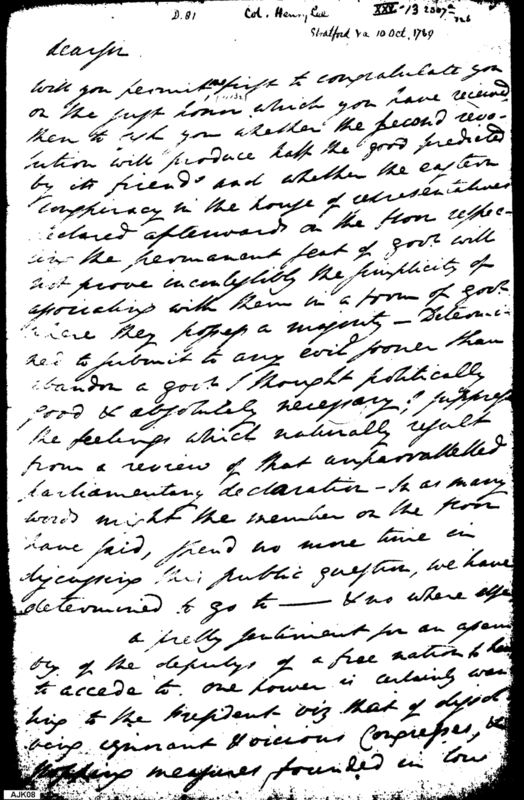 D. 81 Col. Henry Lee XXV-13 2007
Stratford Va 10 Oct, 1789
dear sir
Will you permit me first to congratulate you
on the just honor which you have received
then to ask you whether the second revo-
lution will produce half the good predicted
by its friends and whether the eastern
conspiracy in the house of representatives
declared afterwards on the floor respec-
ing the permanent seat of govt. will
not prove incontestibly the simplicity of
associating with them in a form of govt.
where they possess a majority — Determi-
ned to submit to any evil sooner than
abandon a govt. I thought politically
good & absolutely necessary, I suppress
the feelings which naturally result
from a review of that unparrallelled
parliamentary declaration — In as many
words might the member on the floor
have said, spend no more time in
discussing this public question, we have
determined to go to —— & no where else
a pretty sentiment for an assem
bly of the deputys of a free nation to have
to accede to. one power is certainly wan
ting to the President viz that of dissol
ving ignorant & vicious Congresses, &
stopping measures founded in low
AJK08